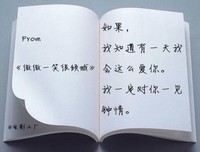 From
《微微一笑很倾城》
如果，
我知道有一天我
会这么爱你。
我一定对你一见
钟情。